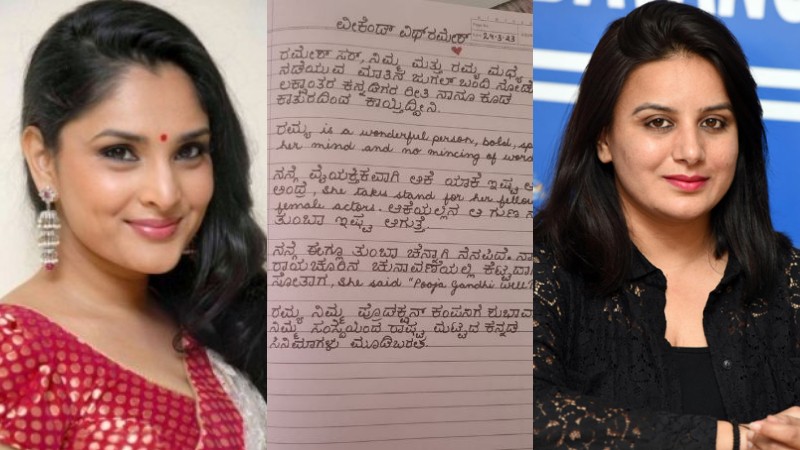 ವೀಕೆಂಡ್ ವಿಥ್ ರಮೇಶ್
24-3-23
ರಮೇಶ್ ಸರ್, ನಿಮ್ಮ ಮತ್ತು ರಮ್ಯ ಮಧ್ಯ
ನಡೆಯುವ ಮಾತಿನ ಜುಗಲ್ ಬಂದಿ
ಲಕ್ಷಾಂತರ ಕನ್ನಡಿಗರ ರೀತಿ ನಾನೂ ಕೂಡ
ಕಾತುರದಿಂದ ಕಾಯ್ತಿದ್ದೀನಿ.
ರಮ್ಯ is a wonderful person, bold,
her mind and no mincing of
ನನ್ಗೆ ವೈಯಕ್ತಿಕವಾಗಿ ಆಕೆ ಯಾಕೆ ಇಷ್ಟ
ಅಂದ್ರೆ, She takes stand for her
female actors. ಆಕೆಯಲ್ಲಿನ ಆ ಗುಣ
ತುಂಬಾ ಇಷ್ಟ ಆಗುತ್ತೆ.
ನನ್ಗೆ ಈಗ್ಲೂ ತುಂಬಾ ಚೆನ್ನಾಗಿ ನೆನಪಿದೆ.
ರಾಯಚೂರಿನ ಚುನಾವಣೆಯಲ್ಲಿ
ಸೋತಾಗ, She said "Pooja Gandhi
ರಮ್ಯ ನಿಮ್ಮ ಪ್ರೊಡಕ್ಷನ್ ಕಂಪನಿಗೆ
ನಿಮ್ಮ ಸಂಸ್ಥೆಯಿಂದ ರಾಷ್ಟ್ರ ಮಟ್ಟದ ಕನ್ನಡ
ಸಿನಿಮಾಗಳು ಮೂಡಿಬರಲಿ.